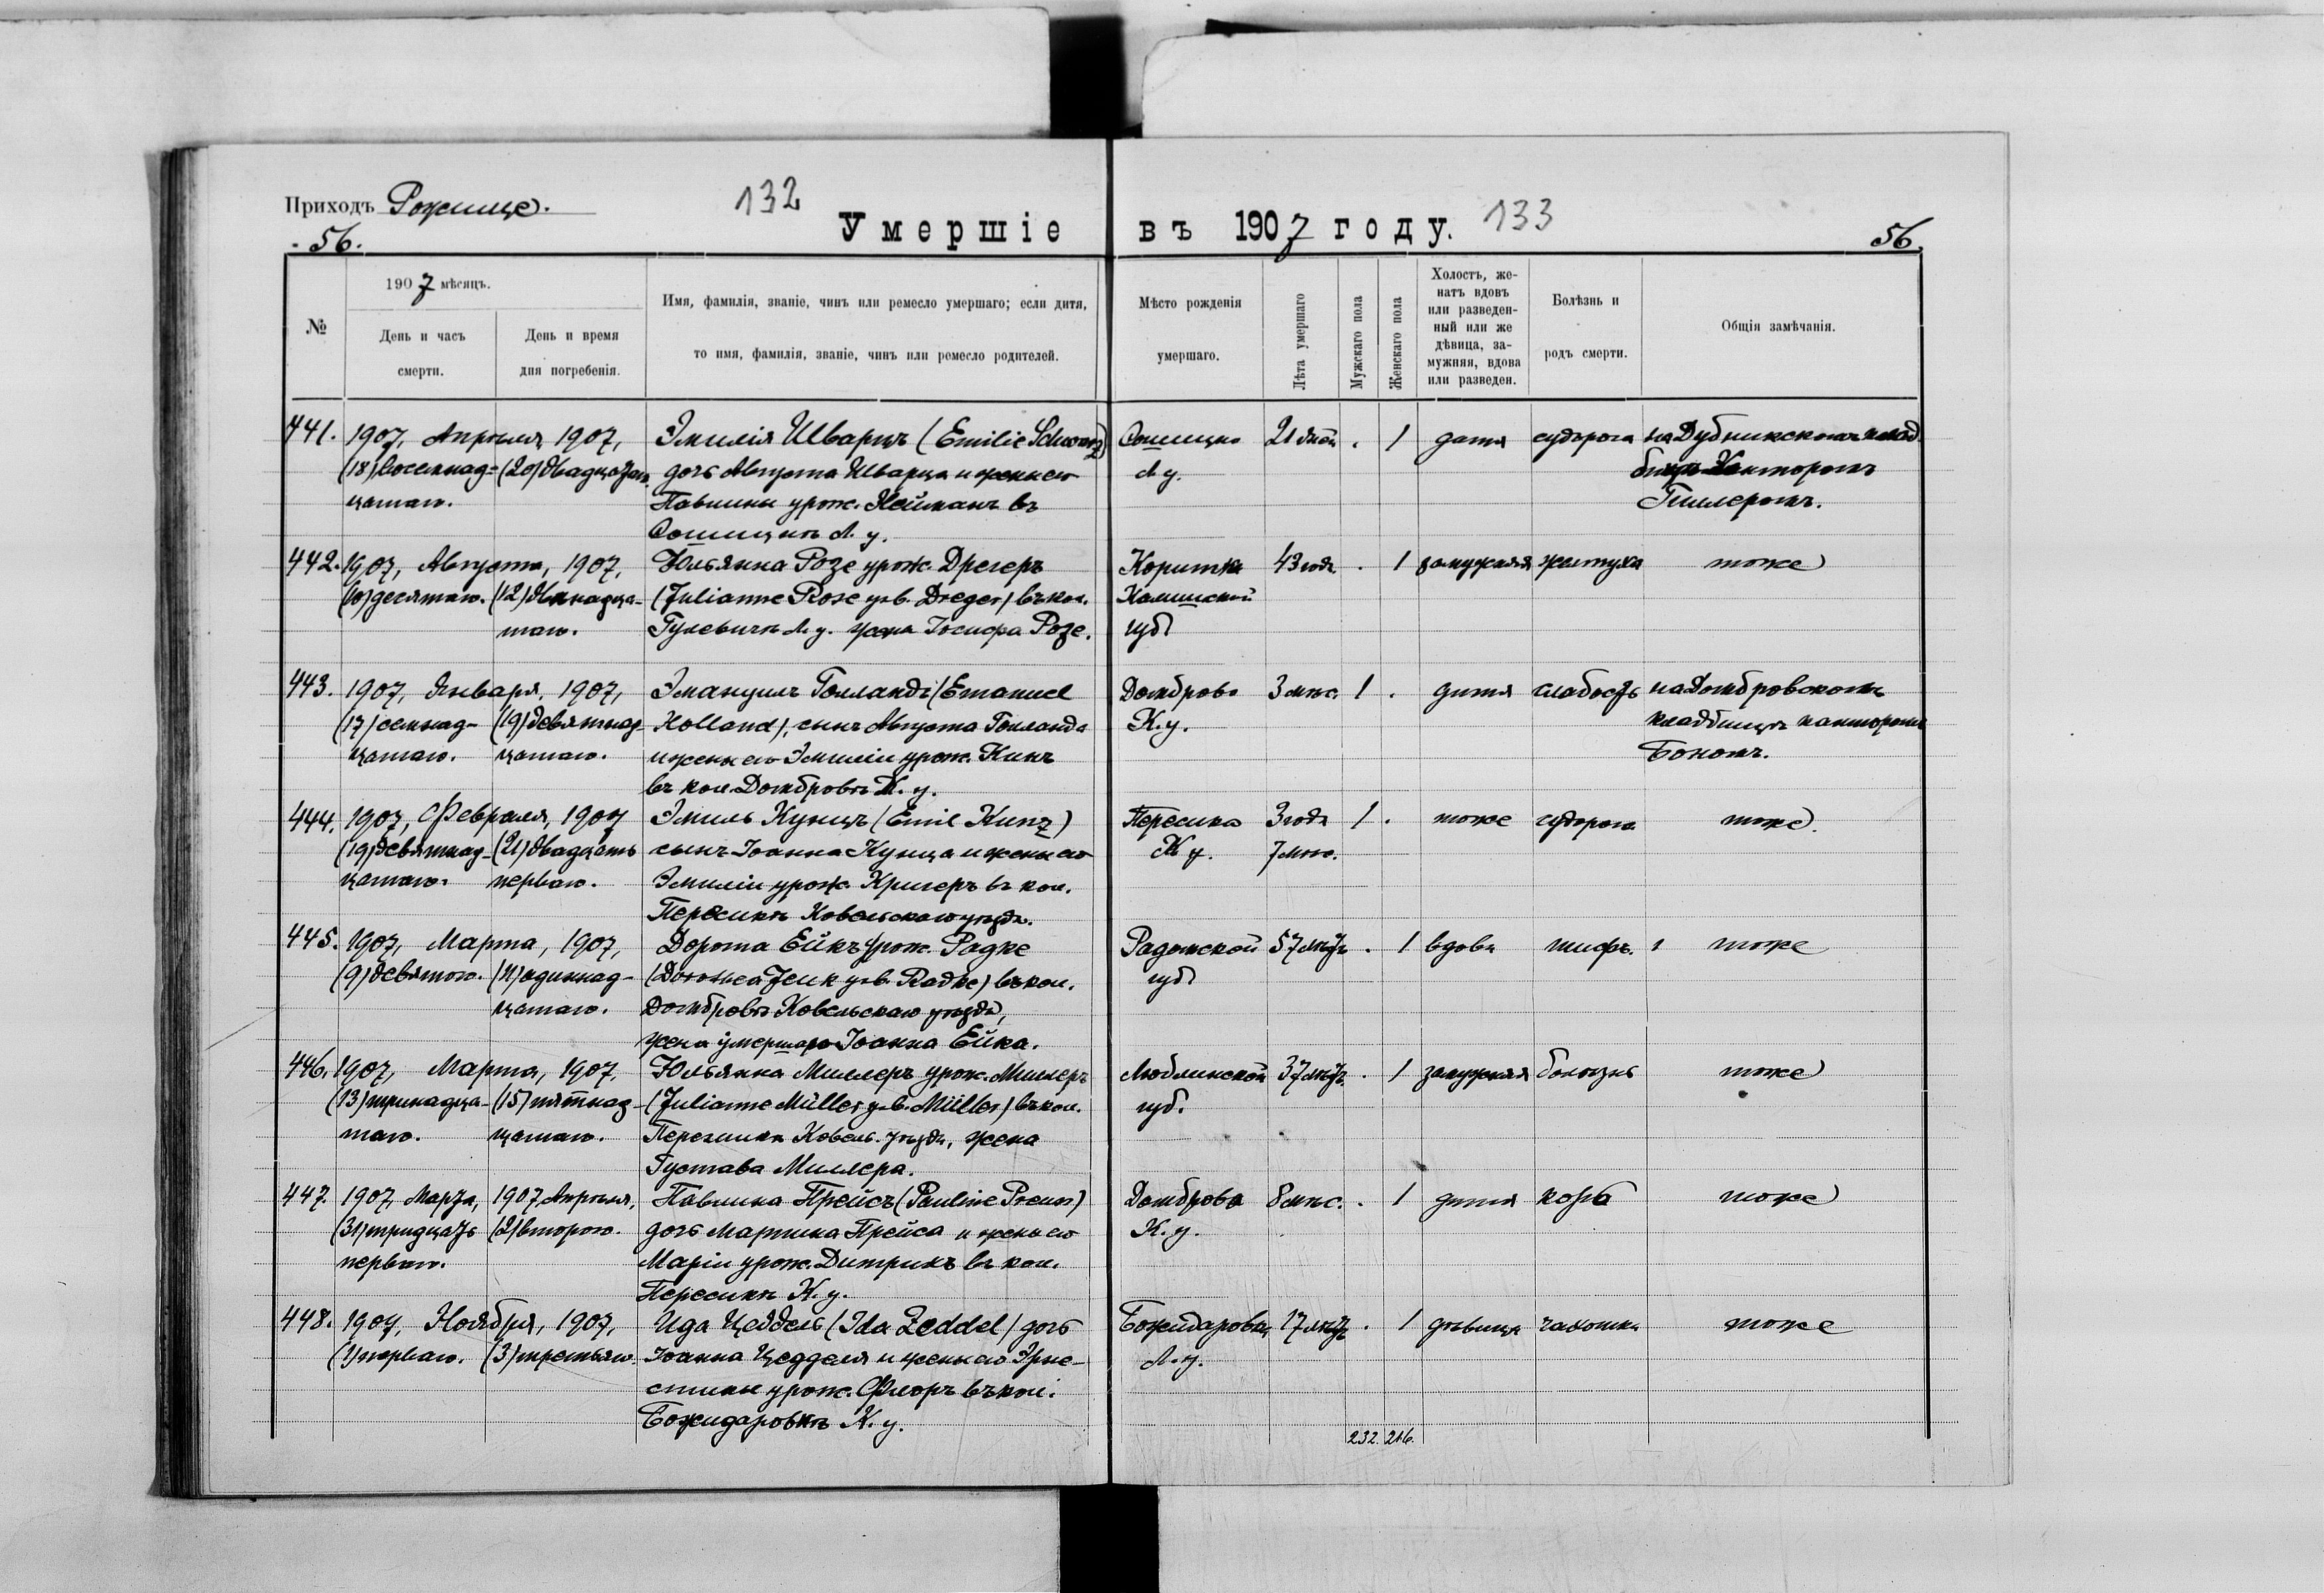 Приходъ Рожище.
132
133
56.
Умершіе въ 1907 году.
56.
№
1907 мѣсяцъ.
День и часъ смерти.
День и время дня погребенія.
Имя, фамилія, званіе, чинъ или ремесло умершаго; если дитя,
то имя, фамилія, званіе, чинъ или ремесло родителей.
Мѣсто рожденія
умершаго.
Лѣта умершаго
Мужскаго пола
Женскаго пола
Холостъ, же-
натъ вдовъ
или разведен-
ный или же
дѣвица, за-
мужняя, вдова
или разведен.
Болѣзнь и
родъ смерти.
Общія замѣчанія.
441. 1907, Апрѣля, 1907, Эмилія Шварцъ (Emilie Schwarz) 21 дней . 1 дитя судорога на Дубникскомъ клад
(18) восемнад- (20) двадцатаго. дочь Августа Шварца и жены его Л у.
цатаго. Павлины урож. Нейманъ въ Гиллеромъ.
Л. у.
442. 1907, Августа, 1907, Юльянна Розе урож. Дрегеръ 43 года . 1 замужняя желтуха тоже
(10) десятаго. (12) двѣнадца- (Julianne Rose geb. Dreger) въ кол.
таго. Гулевичи Л. у. жена Іосифа Розе. губ.
443. 1907, Января, 1907, Эмануилъ Голландъ (Emanuel Домброва 3 мѣс. 1 . дитя слабость на Домбровскомъ
(17) семнад- (19) девятнад- Holland), сынъ Августа Голланда К. у. кладбищѣ канторомъ
цатаго. цатаго. и жены его Эмиліи урож. Кинъ
въ кол. Домбровѣ К. у.
444. 1907, Февраля, 1907 Эмиль Кунцъ (Emil Kunz) Пересика 3 года 1 . тоже судорога тоже.
(19) девятнад- (21) двадцать сынъ Іоанна Кунца и жены его К у. 7 мѣс.
цатаго. перваго. Эмиліи урож. Кригеръ въ кол.
Пересикѣ Ковельскаго уѣзда.
445. 1907, Марта, 1907, Дорота Ейкъ урож. Радке Радомской 57 лѣтъ . 1 вдова тифъ. тоже
(9) девятого. (11) одиннад- geb. Radke) въ кол. губ.
цатаго. Домбровѣ Ковельскаго уѣзда,
жена умершаго Іоанна Ейка.
446. 1907, Марта, 1907, Юльянна Миллеръ урож. Миллеръ Люблинской 37 лѣтъ. . 1 замужняя болѣзнь тоже
(13) тринадца- (15) пятнад- (Julianne Müller geb. Müller) въ кол. губ.
таго. цатаго. Ковель. уѣзда, жена
Густава Миллера.
447. 1907, Марта, 1907 Апрѣля, Павлина Прейсъ (Pauline Preuss) Домброва 8 мѣс. . 1 дитя корь тоже
(31) тридцать (2) второго. дочь Мартина Прейса и жены его К. у.
перваго. Маріи урож. Дитрихъ въ кол.
Пересикѣ К. у.
448. 1907, Ноября, 1907, Ида Цеддель (Ida Zeddel) дочь Божидаровка 17 лѣтъ . 1 дѣвица чахотка тоже
(1) перваго. (3) третьяго. Іоанна Цедделя и жены его Эрне- Л. у.
стины урож. Флоръ въ кол.
Божидаровкѣ К. у.
232. 216.